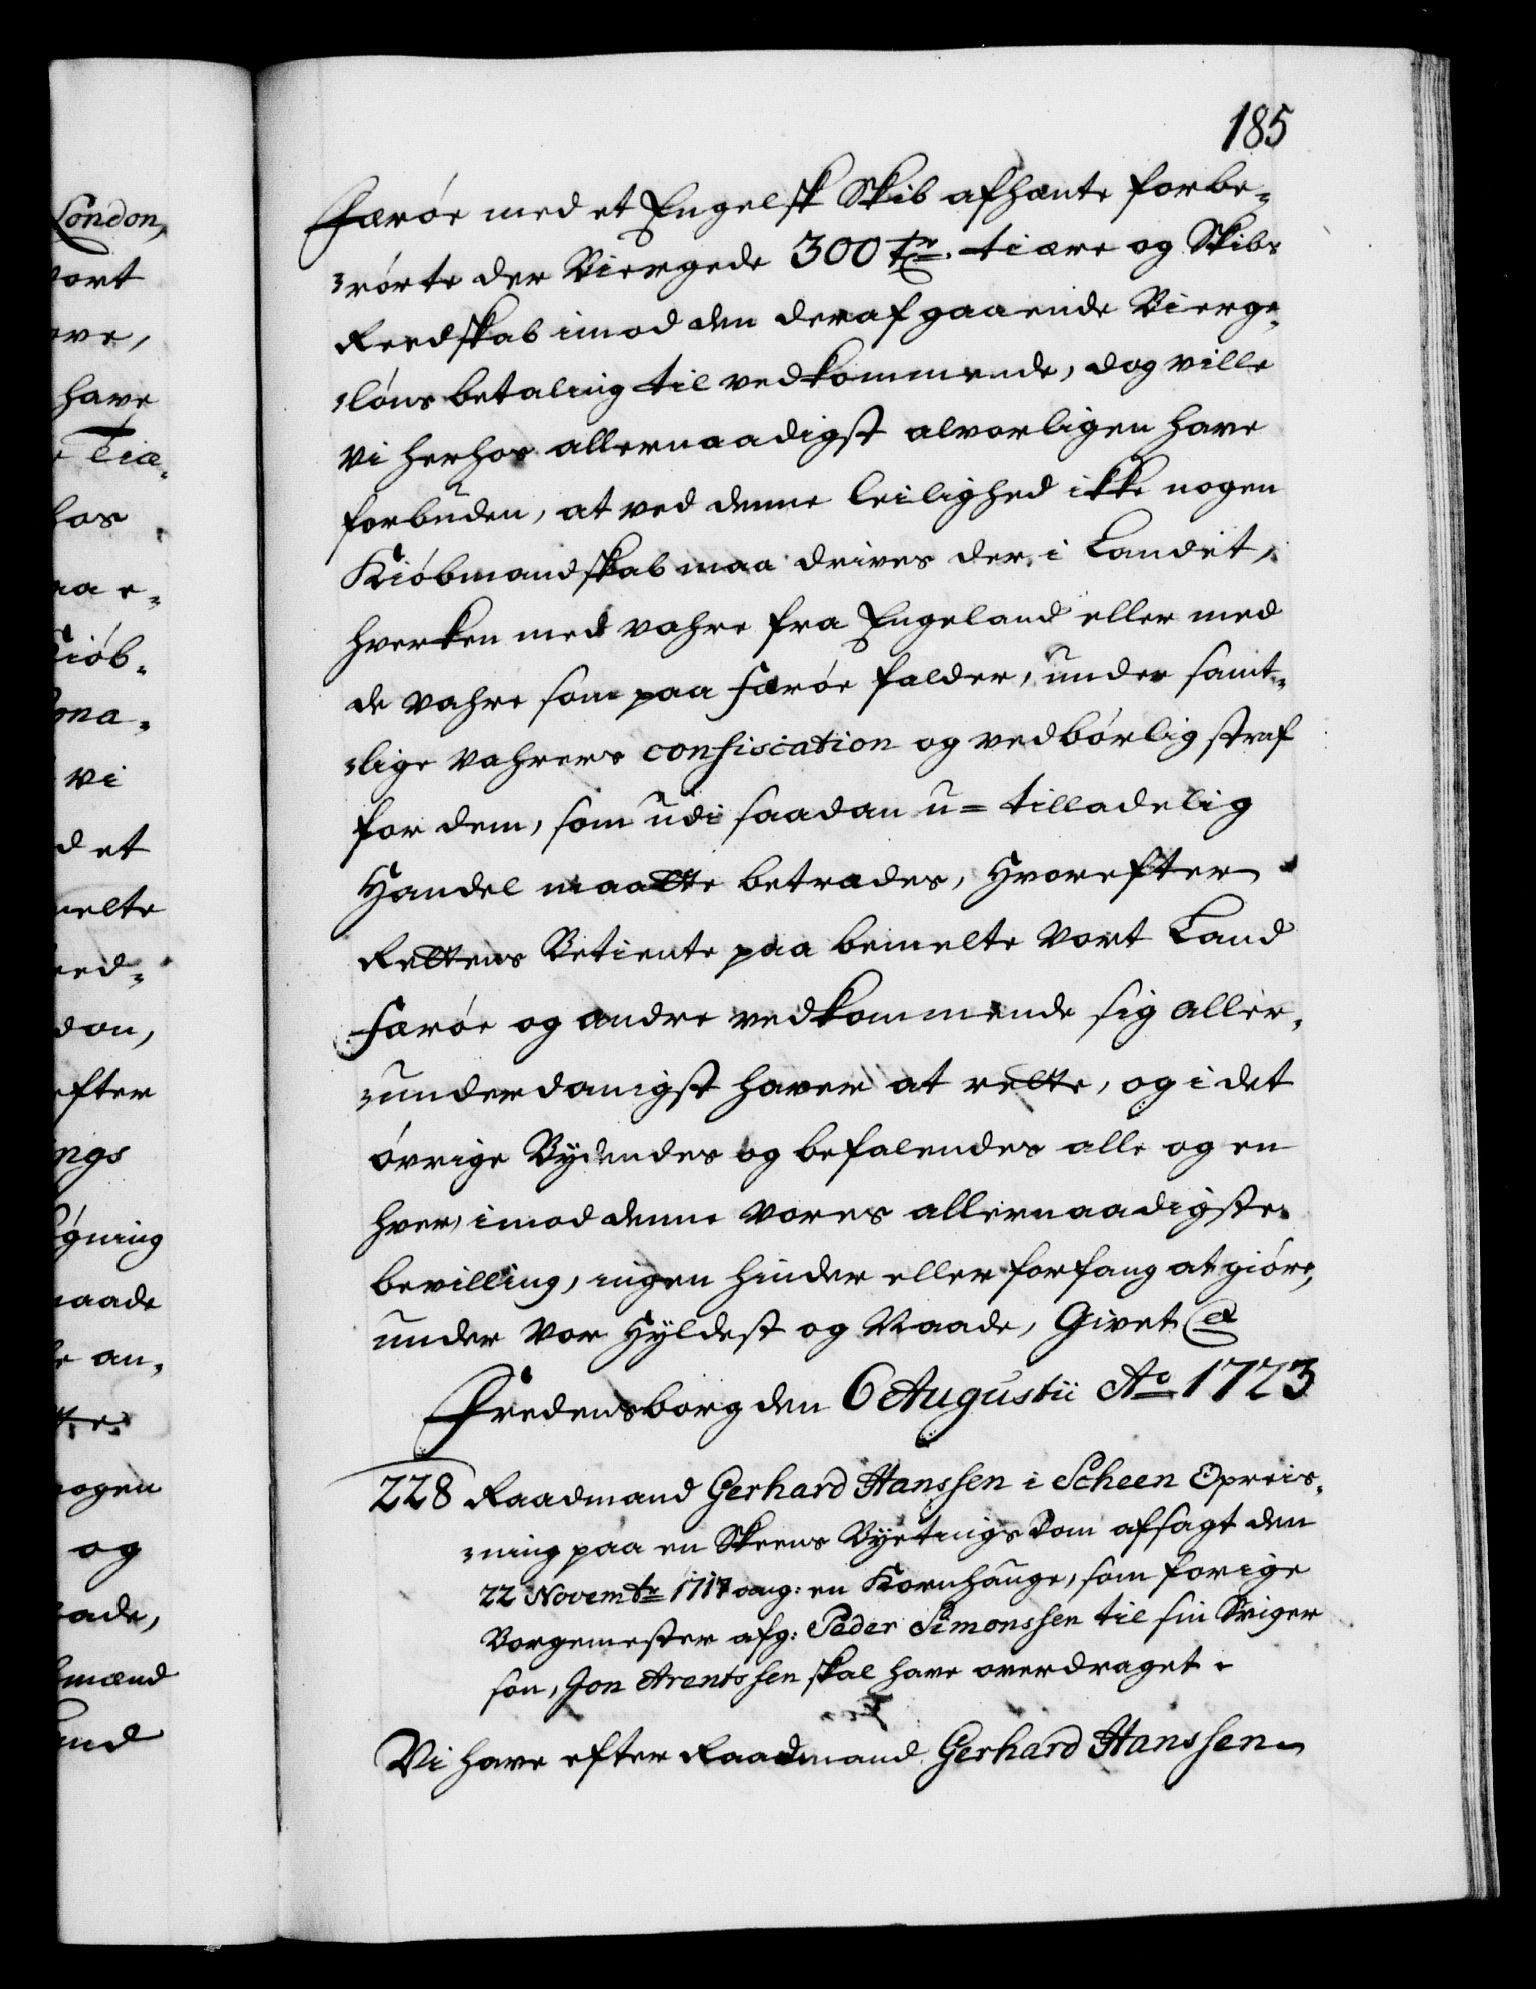 185
London,
vort
have
Tiæ-
hos
Kiöb-
vi
det
melte
don,
efter
ings
naade
an-
nogen
og
mænd
Færöe med et Engelsk Skib afhænte forbe-
-rörte der Biergede 300 tr. tiære og Skibs
Reedskab imod den deraf gaaende Bierge-
-löns betaling til vedkommende, dog ville
vi herhos allernaadigst alvorligen have
forbuden, at ved denne leilighed ikke nogen
Kiöbmandskab maa drives der i Landet,
hverken med vahre fra Engeland eller med
de vahre som paa Færöe falder, under samt-
-lige vahrers confiscation og vedbörlig straf
for dem, som udi saadan u=tilladelig
Handel maatte betrædes, Hvorefter
Rettens Betiente paa bemelte Vort Land
Færöe og andre vedkommende sig aller-
-underdanigst haver at rette, og i det
övrige Bydendes og befalendes alle og en
hver, imod denne Vores allernaadigste
bevilling, ingen hinder eller forfang at giöre,
under Vor Hyldest og Naade, Givet
Fredensborg den 6 Augustii Ao 1723
228 Raadmand Gerhard Hanssen i Scheen Opreis-
-ning paa en Skeens Byetings Dom afsagt den
22 Novembr 1717 ang: en Kornhauge, som forige
Borgemester afg: Peder Simonssen til sin Sviger
sön, Jon Arentssen skal have overdraget.
Vi have efter Raadmand Gerhard Hanssens